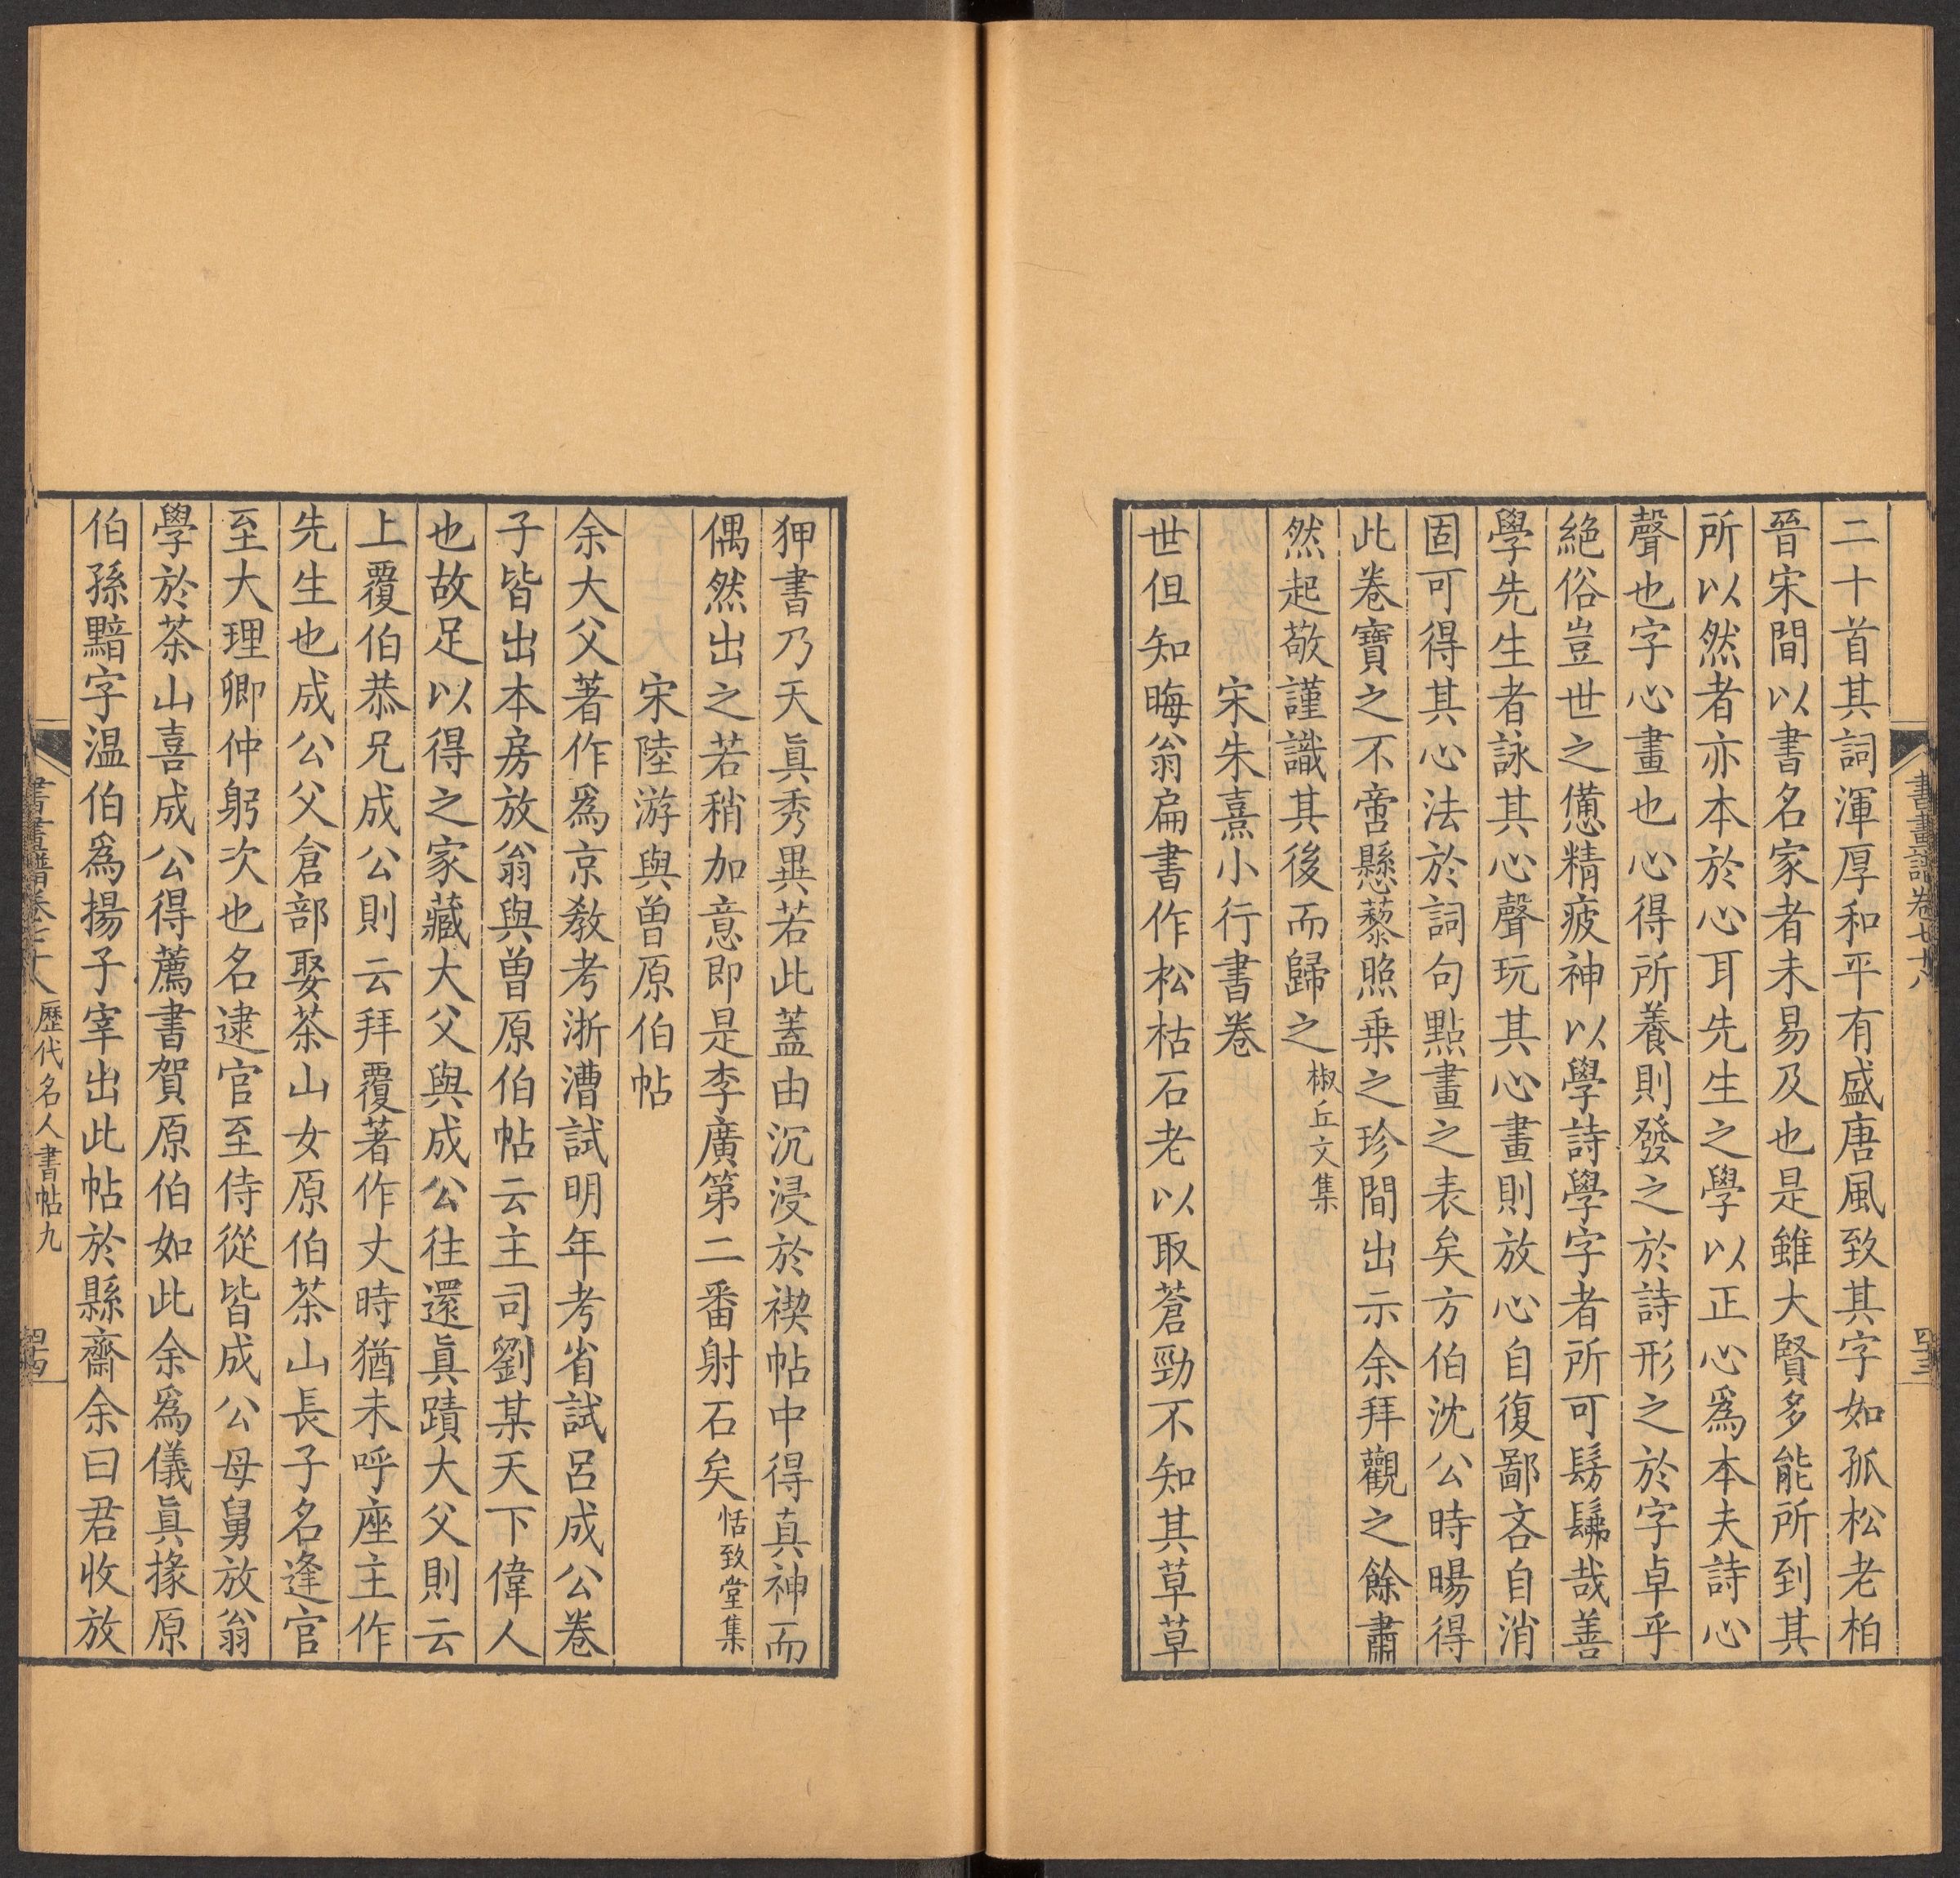 書畫譜卷七十八
四十三
二十首其詞渾厚和平有盛唐風致其字如孤松老柏
晉宋間以書名家者未易及也是雖大賢多能所到其
所以然者亦本於心耳先生之學以正心爲本夫詩心
聲也字心畫也心得所養則發之於詩形之於字卓乎
絕俗豈世之憊精疲神以學詩學字者所可髣髴哉善
學先生者詠其心聲玩其心畫則放心自復鄙吝自消
固可得其心法於詞句點畫之表矣方伯沈公時暘得
此卷寶之不啻懸藜照乗之珍間出示余拜觀之餘肅
然起敬謹識其後而歸之椒丘文集
宋朱熹小行書卷
世但知晦翁扁書作松枯石老以取蒼勁不知其草草
狎書乃天眞秀異若此蓋由沉浸於禊帖中得真神而
偶然出之若稍加意即是李廣第二番射石矣恬致堂集
宋陸游與曾原伯帖
余大父著作爲京敎考浙漕試明年考省試呂成公卷
子皆出本房放翁與曾原伯帖云主司劉某天下偉人
也故足以得之家藏大父與成公往還眞蹟大父則云
上覆伯恭兄成公則云拜覆著作丈時猶未呼座主作
先生也成公父倉部娶茶山女原伯茶山長子名逢官
至大理卿仲躬次也名逮官至侍從皆成公母舅放翁
學於茶山喜成公得薦書賀原伯如此余爲儀眞掾原
伯孫黯字温伯爲揚子宰出此帖於縣齋余曰君收放
書畫譜卷七十八
歷代名人書帖九
四十四